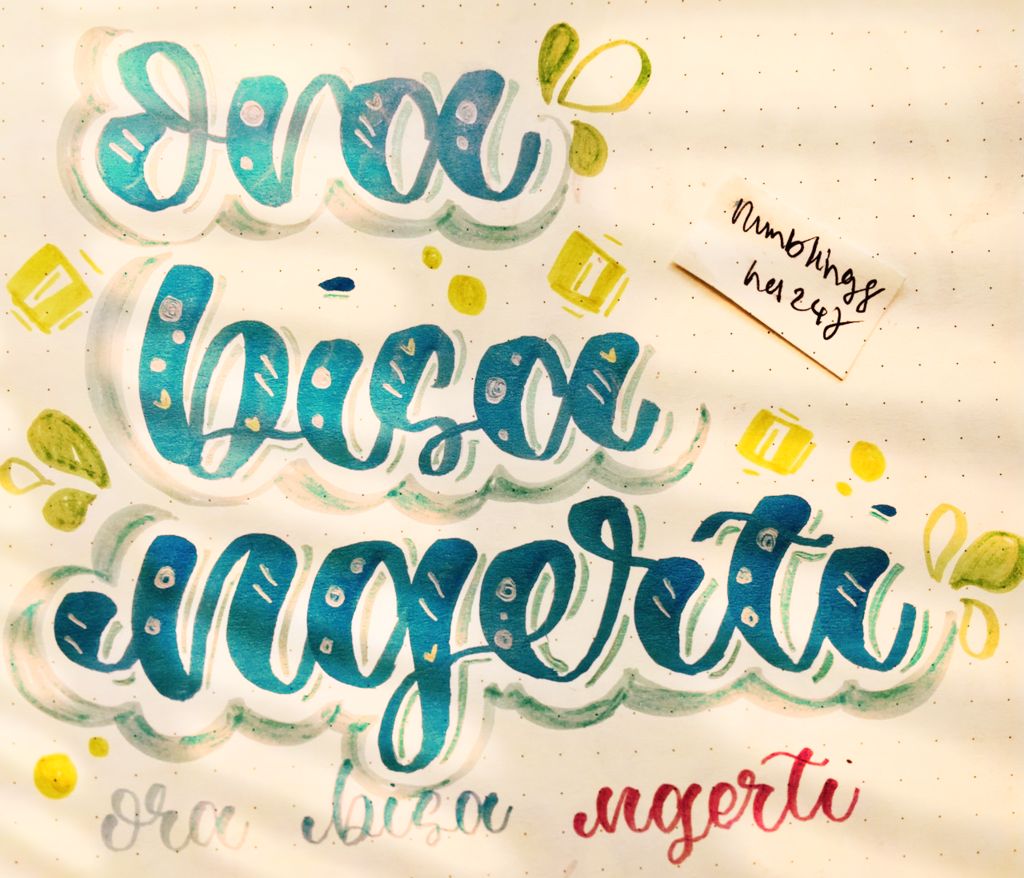 ora
bisa
ngerti
numblingg
her247
ora bisa ngerti